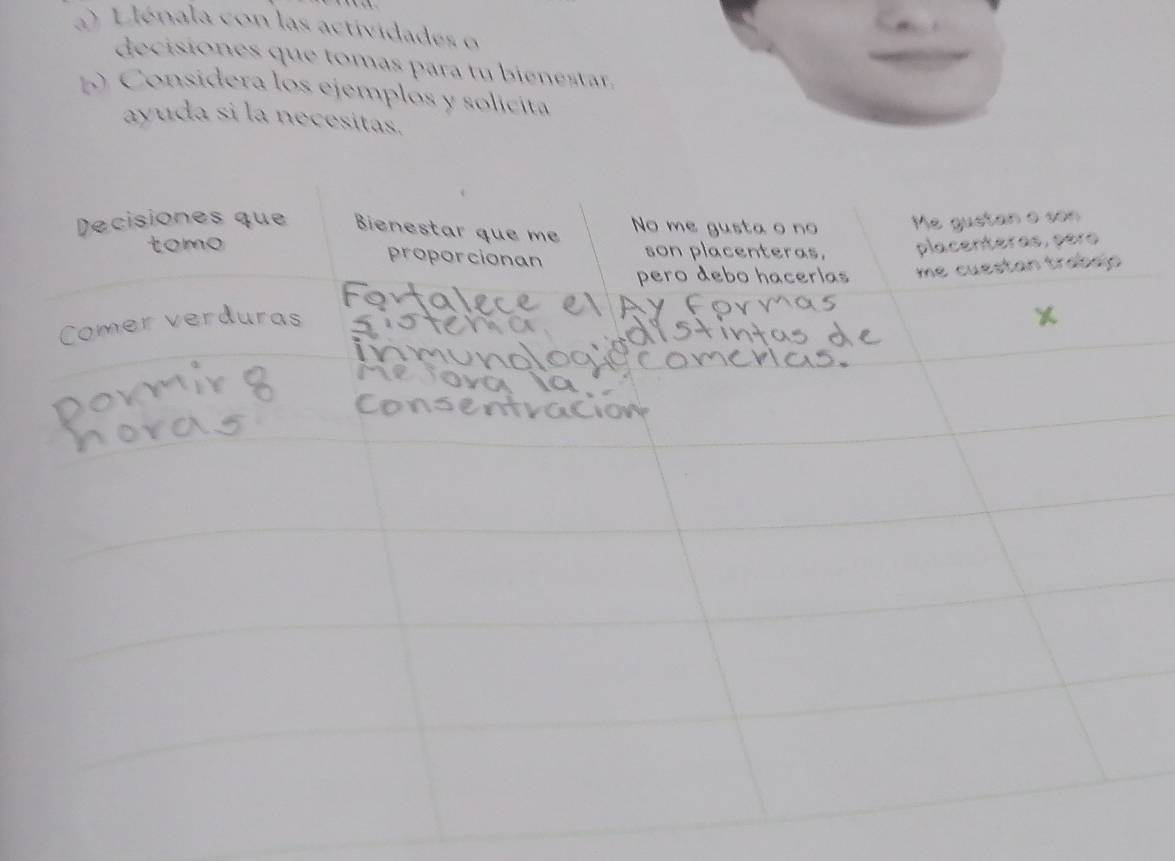 a) Llénala con las actividades o
decisiones que tomas para tu bienestar.
b) Considera los ejemplos y solicita
ayuda si la necesitas.
Decisiones que
tomo
Bienestar que me
proporcionan
No me gusta o no
son placenteras,
pero debo hacerlas
Me gustan o son
placenteras, pero
me cuestan trabajo
Comer verduras
Fortalece el
sistema
inmunologico
Ay formas
distintas de
comerlas.
x
Dormir 8
horas
mejora la
consentracion